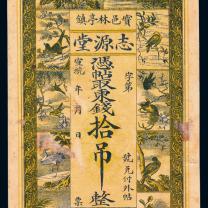 寶邑林亭鎮
志源堂
字第
號兌付外帖
憑帖取東錢拾吊整
宣統 年 月 日 票